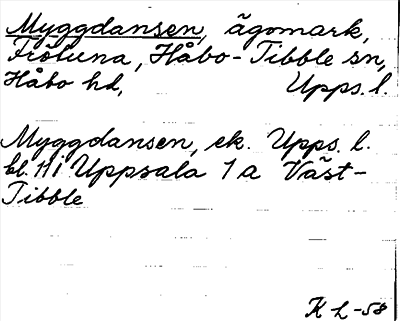 Myggdansen, ägomark,
Fröluna, Håbo-Tibble sn,
Håbo hd, Upps. l.
Myggdansen, ek. Upps. l.
bl. 111 Uppsala 1a Väst-
Tibble
K L -58